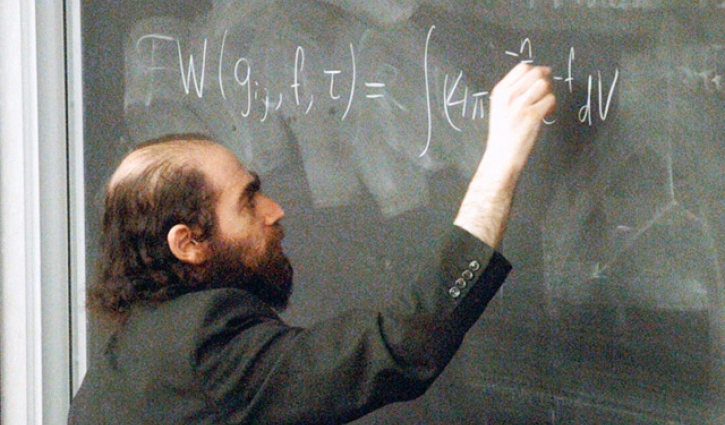 W(g_{ij}, f, τ) = ∫(4π e^{-f} dV